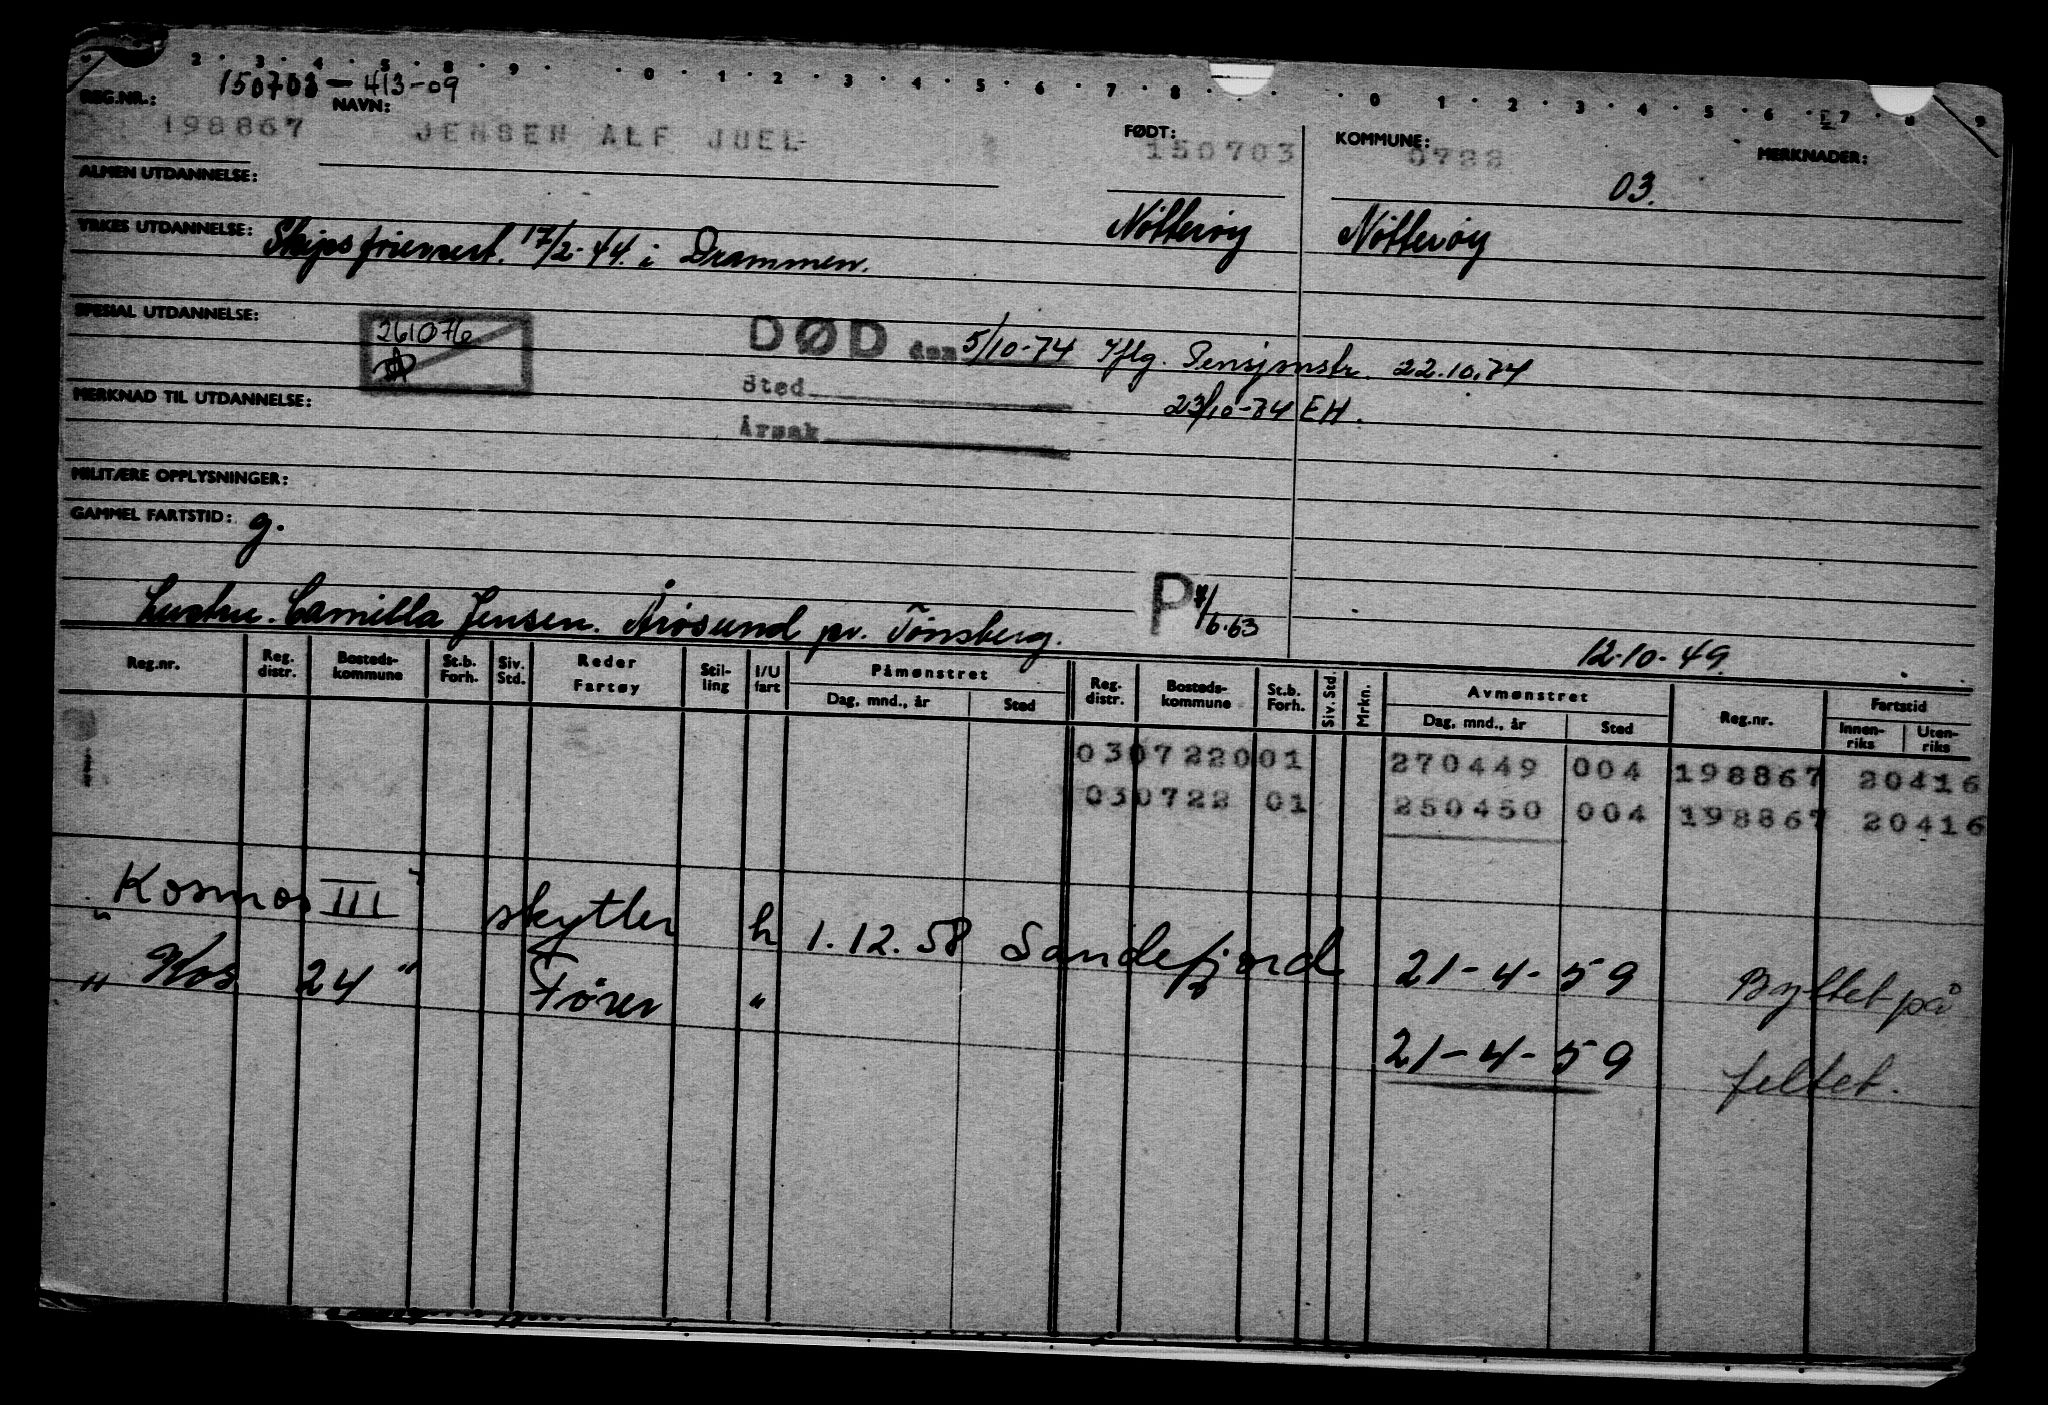 2 · 3 · 4 · 5 · 8 · 9 · · 0 · 1 · 2 · 3 · 4 · 5 · 6 · 7 · 8 · · · 0 1 · 2 · 3 · 4 · 5 · 6 · 7 · 8 9
150703 - 413-09
REG.NR.: NAVN: FØDT: KOMMUNE: MERKNADER:
198867 JENSEN ALF JUEL 150703 0722
03.
ALMEN UTDANNELSE:
YRKES UTDANNELSE: Skipsførersert. 17/2-44. i Drammen. Nötteröy Nötteröy
SPESIAL UTDANNELSE:
261076 DØD den 5/10-74 Iflg. Pensjonstr. 22.10.74
Sted 23/10-74 EH.
MERKNAD TIL UTDANNELSE:
Årsak
MILITÆRE OPPLYSNINGER:
GAMMEL FARTSTID: g.
Hustru. Camilla Jensen. Årøsund pr. Tönsberg. P 7/6.63
12-10-49
Reg.nr. Reg. distr. Bosteds-kommune St.b. Forh. Siv. Std. Reder Fartøy Stil-ling I/U fart Påmønstret Dag, mnd., år Sted Reg. distr. Bosteds-kommune St.b. Forh. Siv. Std. Mrkn. Avmønstret Dag, mnd., år Sted Reg.nr. Fartstid Innen-riks Uten-riks
030722001 270449 004 198867 20416
030722 01 250450 004 198867 20416
"Kosmos III" skytter h 1.12.58 Sandefjord 21-4-59 Byttet på
"Kos 24" Fører " 21-4-59 feltet.